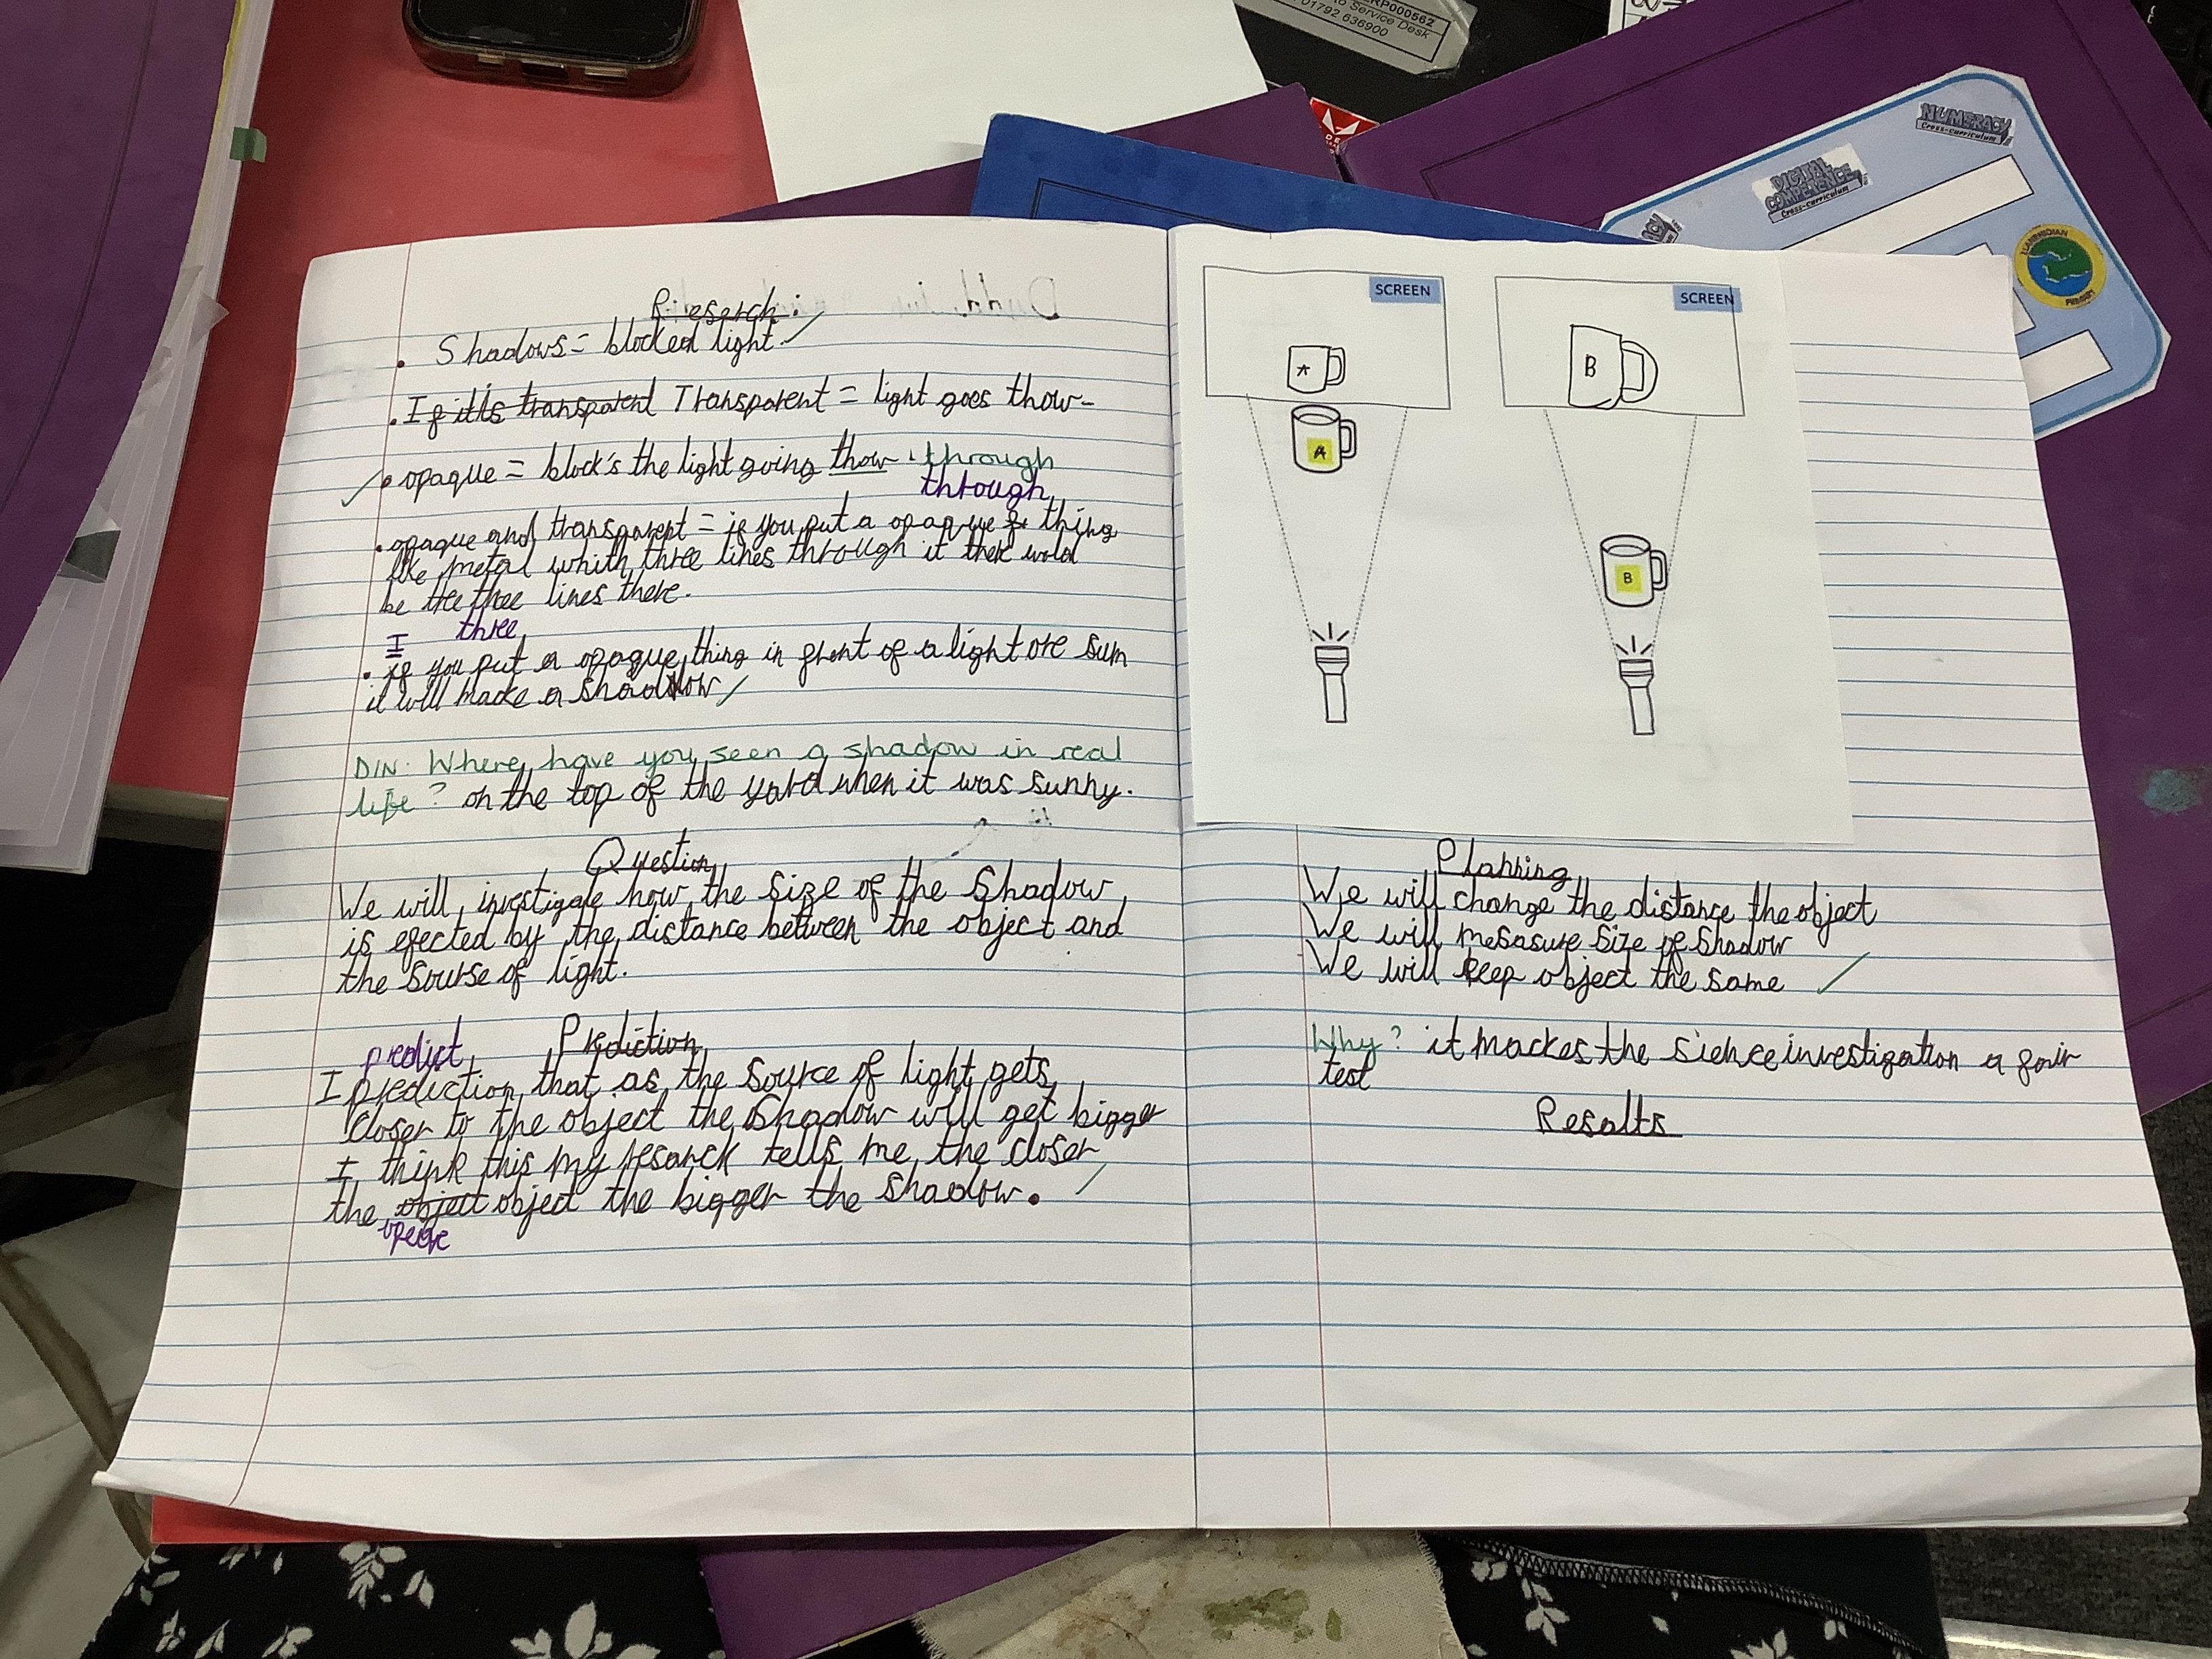 RP000562
to Service Desk
01792 636900
NUMERACY
Cross-curriculum
DIGITAL
COMPETENCE
Cross-curriculum
LLANRHIDIAN
PRIMARY
Research:
. Shadows = blocked light.
. If it's transparent Transparent = light goes thow-
. opaque = block's the light going thow . through
through
. opaque and transparent = if you put a opaque thing
like metal whith three lines through it there wold
be tree three lines there.
I three
. if you put a opaque thing in front of a light ore sum
it will macke a shaddow
DIN: Where have you seen a shadow in real
life? on the top of the yard when it was sunny.
Question
We will investigate how the size of the shadow
is efected by the distance between the object and
the sourse of light.
Prediction
predict
I prediction that as the source of light gets
closer to the object the shadow will get bigger
I think this my resarck tells me the closer
the object object the bigger the shadow.
SCREEN
A
A
SCREEN
B
B
Planning
We will change the distance the object
We will mesasure size of shadow
We will keep object the same
Why? it mackes the sience investigation a fair
test
Results